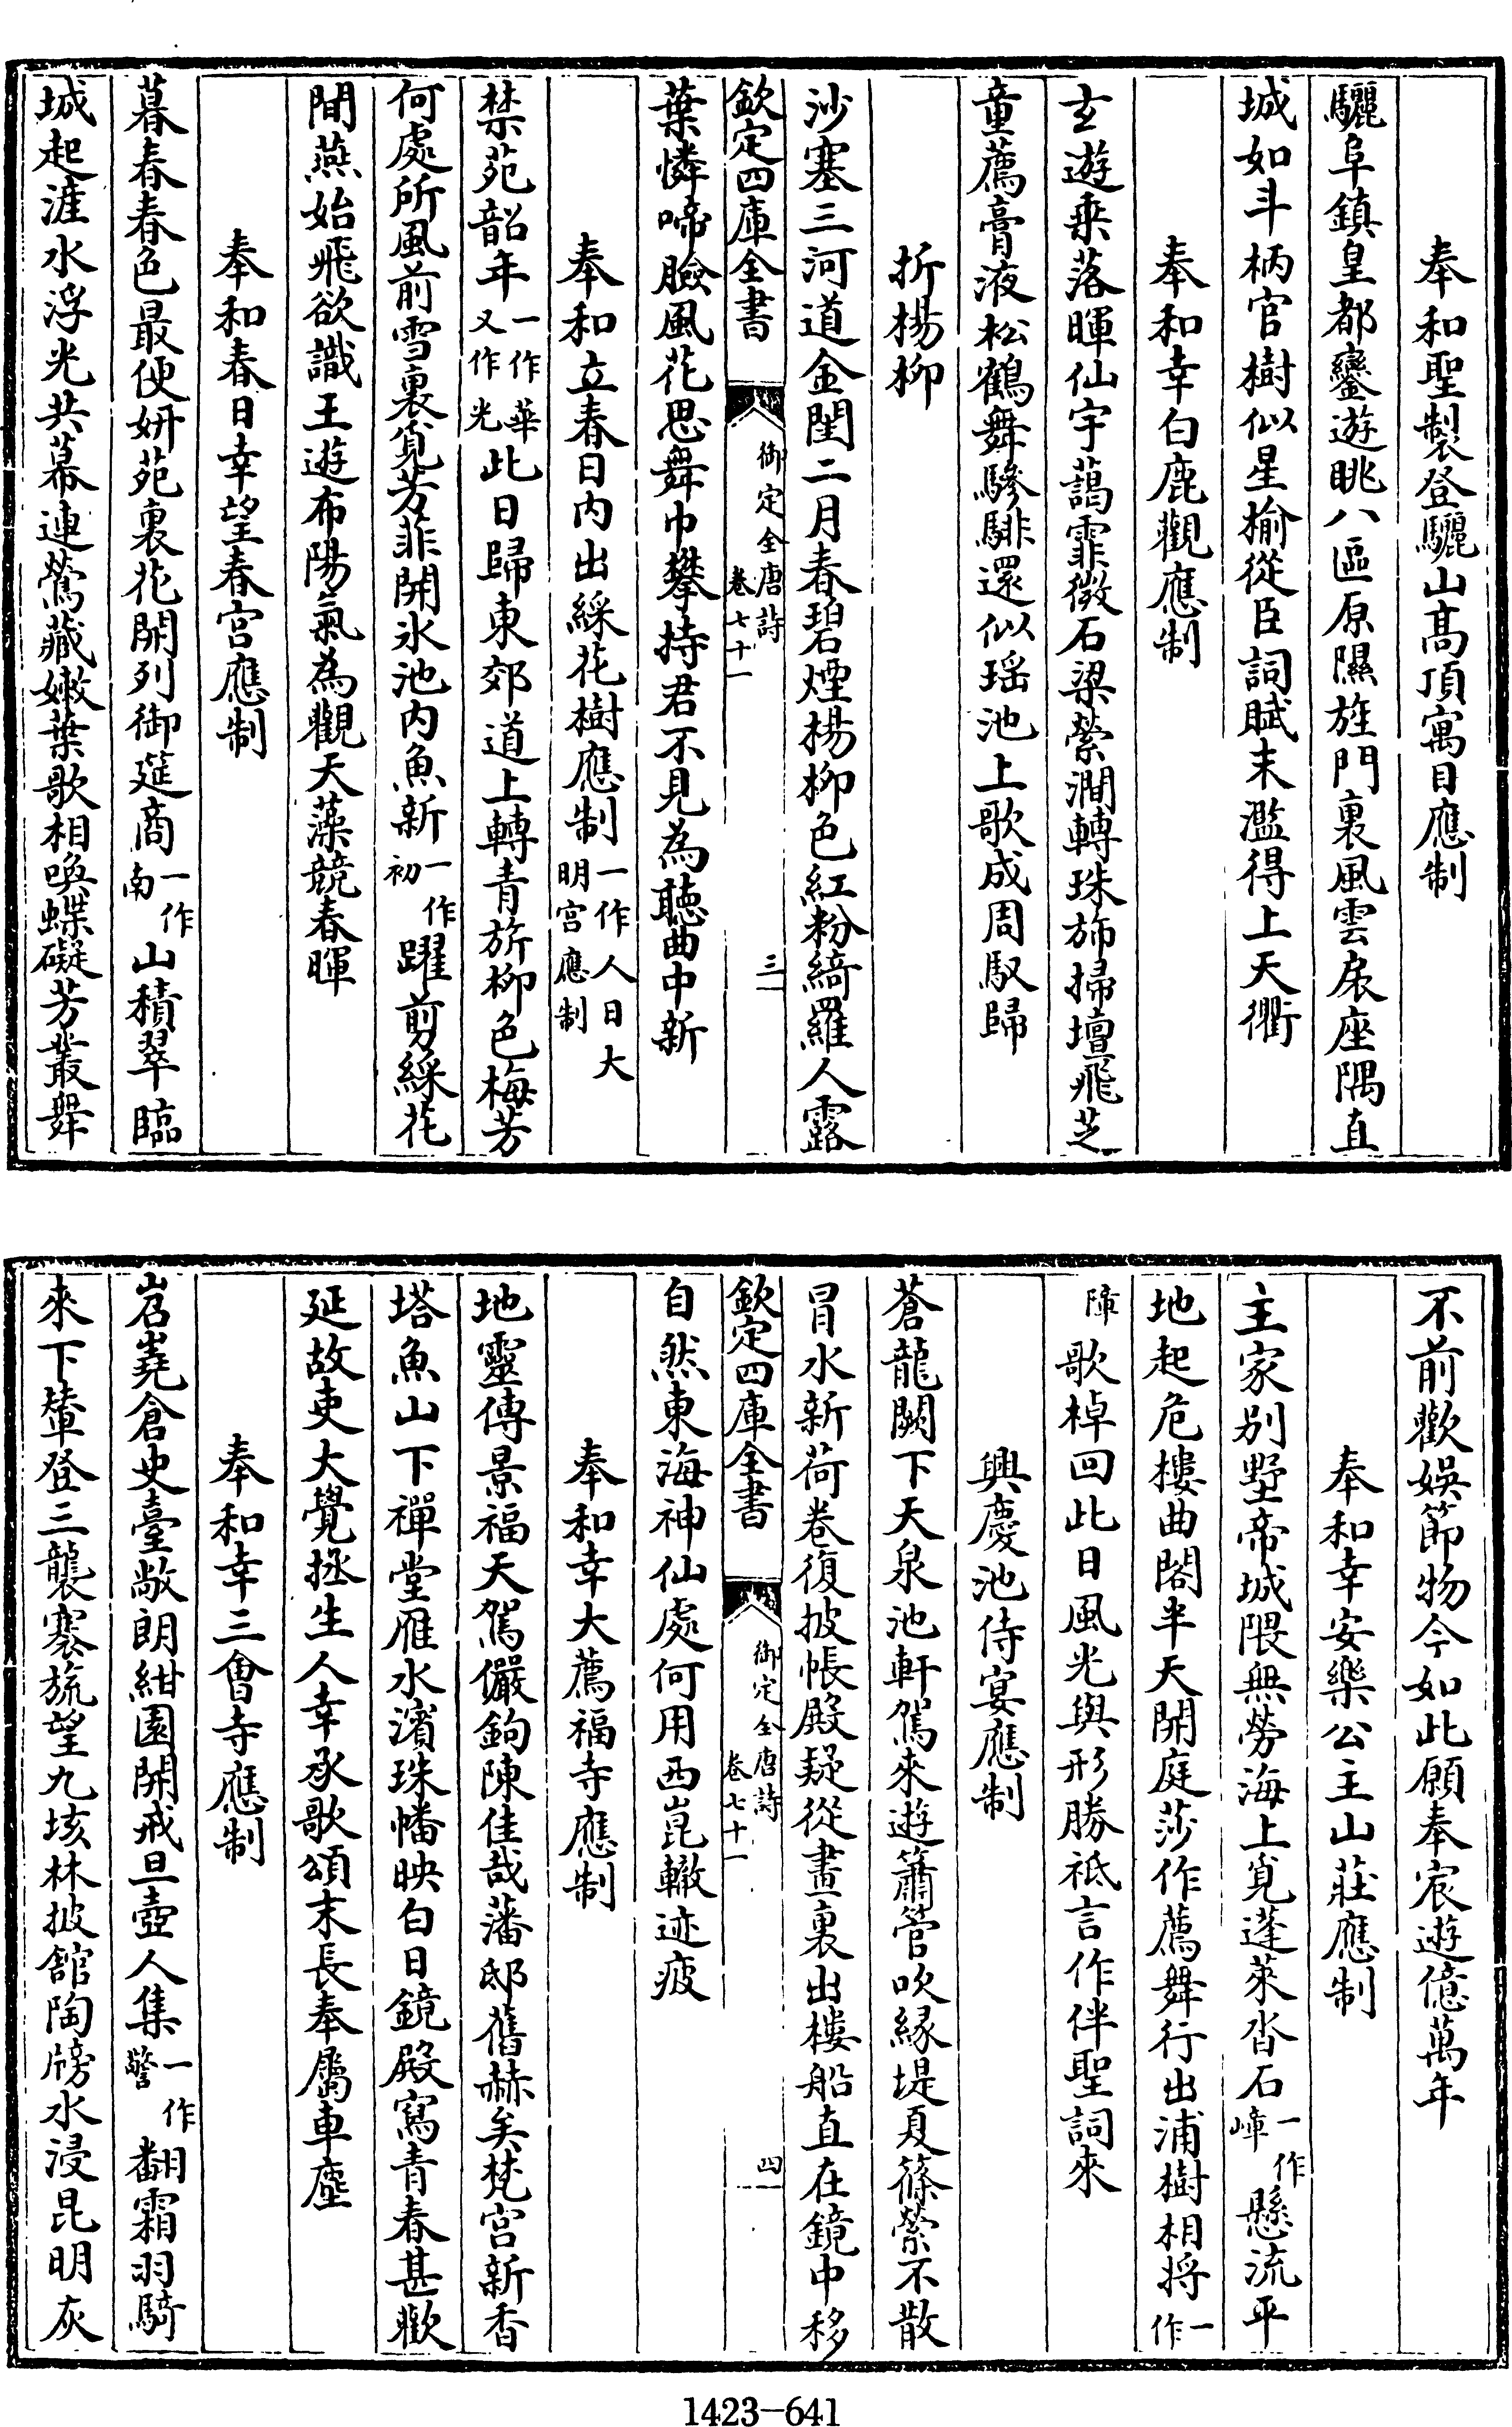 奉和聖製登驪山髙頂寓目應制
驪阜鎮皇都鑾遊眺八區原隰旌門裏風雲扆座隅直
城如斗柄官樹似星榆從臣詞賦末濫得上天衢
奉和幸白鹿觀應制
玄遊乗落暉仙宇藹霏微石梁縈澗轉珠斾掃壇飛芝
童薦膏液松鶴舞驂騑還似瑤池上歌成周馭歸
折楊柳
沙塞三河道金閨二月春碧煙楊柳色紅粉綺羅人露
欽定四庫全書
御定全唐詩
卷七十一
三
葉憐啼臉風花思舞巾攀持君不見為聴曲中新
奉和立春日内出綵花樹應制一作人日大明宫應制
禁苑韶年一作華又作光此日歸東郊道上轉青旂柳色梅芳
何處所風前雪裏覓芳菲開氷池内魚新一作初躍剪綵花
間燕始飛欲識王遊布陽氣為觀天藻競春暉
奉和春日幸望春宫應制
暮春春色最便妍苑裏花開列御筵商一作南山積翠臨
城起滻水浮光共幕連鶯藏嫩葉歌相喚蝶礙芳叢舞
不前歡娛節物今如此願奉宸遊億萬年
奉和幸安樂公主山莊應制
主家别墅帝城隈無勞海上覓蓬萊沓石一作嶂懸流平
地起危樓曲閣半天開庭莎作薦舞行出浦樹相將一作
障歌棹回此日風光與形勝祇言作伴聖詞來
興慶池侍宴應制
蒼龍闕下天泉池軒駕來遊簫管吹緣堤夏篠縈不散
冒水新荷卷復披帳殿疑從畫裏出樓船直在鏡中移
欽定四庫全書
御定全唐詩
卷七十一
四
自然東海神仙處何用西崑轍迹疲
奉和幸大薦福寺應制
地靈傳景福天駕儼鉤陳佳哉藩邸舊赫矣梵宫新香
塔魚山下禪堂雁水濱珠幡映白日鏡殿寫青春甚歡
延故吏大覺拯生人幸承歌頌末長奉屬車塵
奉和幸三會寺應制
岧嶤倉史臺敞朗紺園開戒旦壺人集一作警翻霜羽騎
來下輦登三襲褰旒望九垓林披館陶牓水浸昆明灰
1423-641